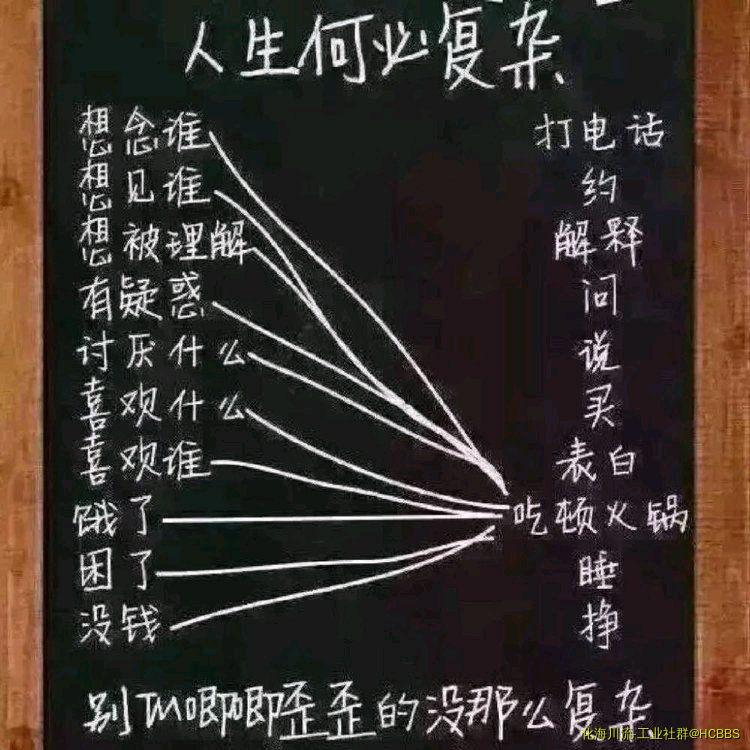 人生何必复杂
想念谁 打电话
想见谁 约
想被理解 解释
有疑惑 问
讨厌什么 说
喜欢什么 买
喜欢谁 表白
饿了 吃顿火锅
困了 睡
没钱 挣
别TM唧唧歪歪的没那么复杂
化海川流-工业社群@HCBBS